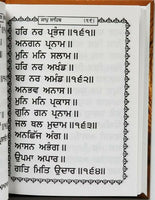 ਜਾਪੁ ਸਾਹਿਬ
ਹਰਿ ਨਰ ਪ੍ਰਭੰਜ ॥੧੬੧॥
ਅਨਗਨ ਪ੍ਰਨਾਮ ॥
ਮੁਨਿ ਮਨਿ ਸਲਾਮ ॥
ਹਰਿ ਨਰ ਅਖੰਡ ॥
ਬਰ ਨਰ ਅਮੰਡ ॥੧੬੨॥
ਅਨਭਵ ਅਨਾਸ ॥
ਮੁਨਿ ਮਨਿ ਪ੍ਰਕਾਸ ॥
ਗੁਨਿ ਗਨ ਪ੍ਰਨਾਮ ॥
ਜਲ ਥਲ ਮੁਦਾਮ ॥੧੬੩॥
ਅਨਛਿੱਜ ਅੰਗ ॥
ਆਸਨ ਅਭੰਗ ॥
ਉਪਮਾ ਅਪਾਰ ॥
ਗਤਿ ਮਿਤਿ ਉਦਾਰ ॥੧੬੪॥